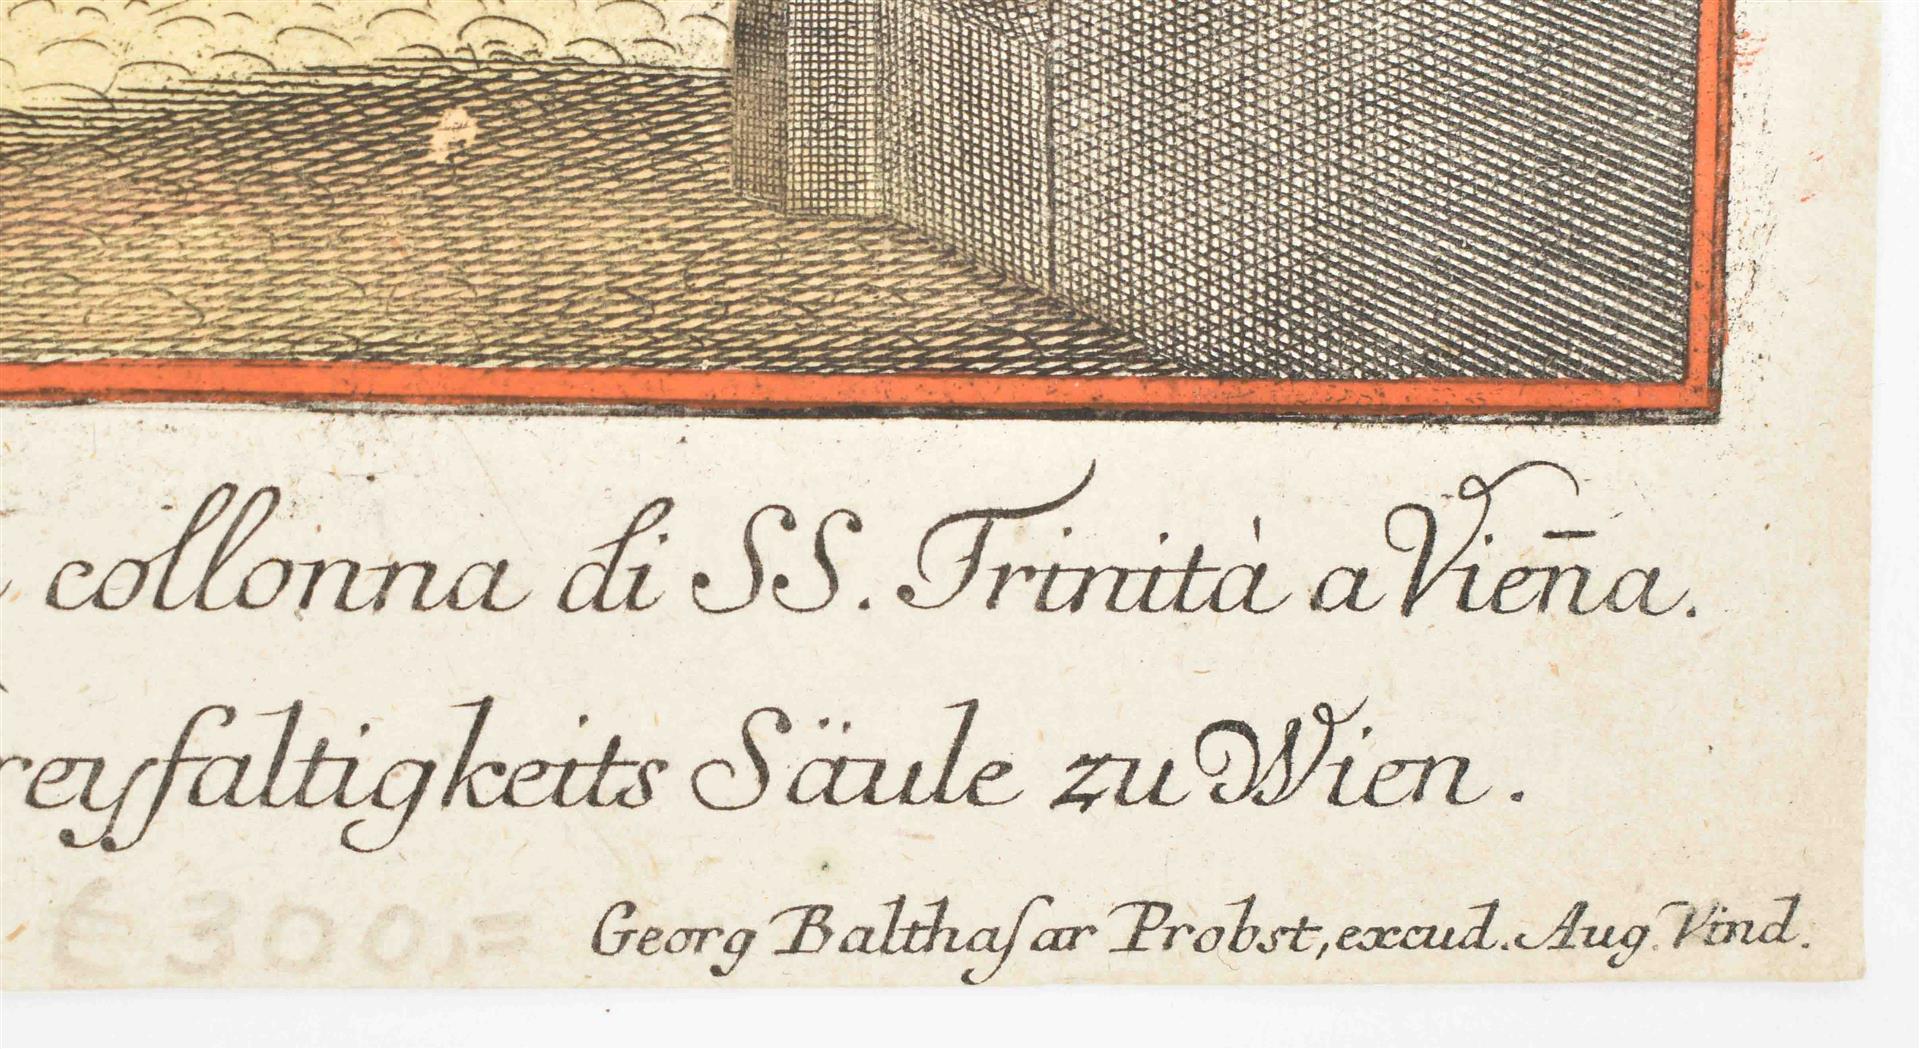 collonna di SS. Trinità a Vien̄a.
reyfaltigkeits Säule zu Wien.
€ 300,=
Georg Balthaſar Probst, excud. Aug. Vind.